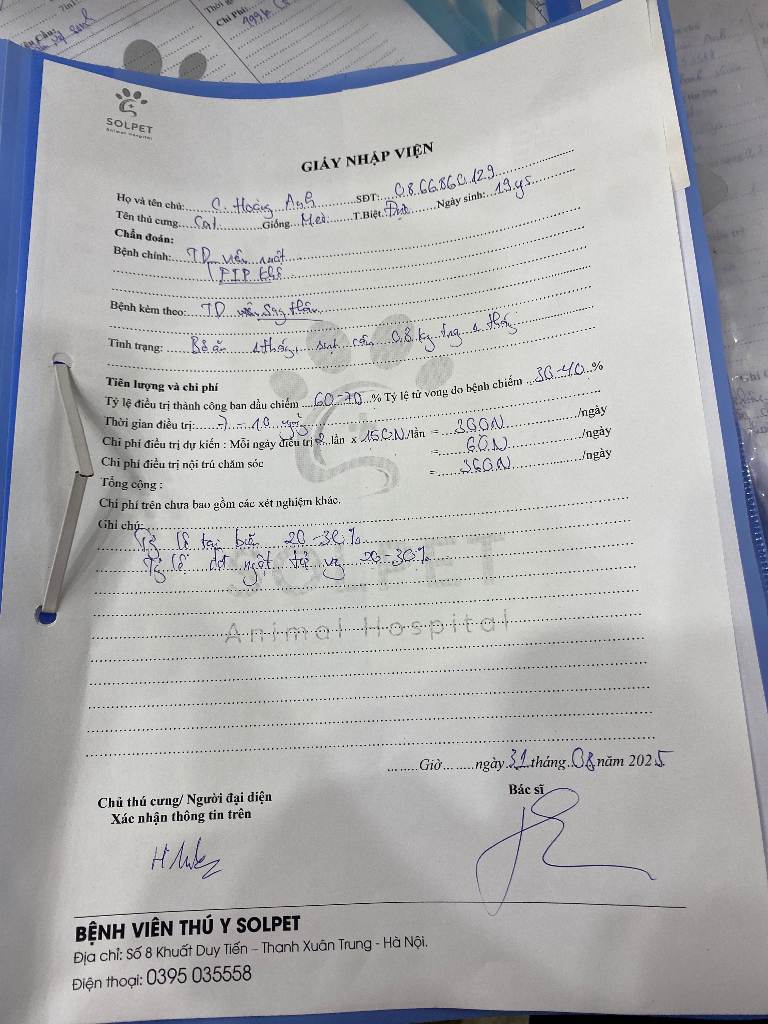 Chi Phí:
SOLPET
Animal Hospital
GIẤY NHẬP VIỆN
Họ và tên chủ: C. Hoàng Anh SĐT: 0866860129
Tên thú cưng: Cat Giống Mèo T.Biệt Ngày sinh: 19 ys
Chẩn đoán:
Bệnh chính: TD viêm ruột
FIP khô
Bệnh kèm theo: TD suy thận
Tình trạng: Bỏ ăn 1 tháng, sụt cân 0.8 kg trong 1 tháng
Tiên lượng và chi phí
Tỷ lệ điều trị thành công ban đầu chiếm 60-70 % Tỷ lệ tử vong do bệnh chiếm 30-40 %
Thời gian điều trị: 7-10 ngày
Chi phí điều trị dự kiến : Mỗi ngày điều trị 2 lần x 150N /lần = 300N /ngày
Chi phí điều trị nội trú chăm sóc = 60N /ngày
Tổng cộng : = 360N /ngày
Chi phí trên chưa bao gồm các xét nghiệm khác.
Ghi chú:
Tỷ lệ tai biến 20-30%
Tỷ lệ đột ngột tử vg 20-30%
SOLPET
Animal Hospital
Giờ ngày 31 tháng 08 năm 2025
Chủ thú cưng/ Người đại diện
Xác nhận thông tin trên
Bác sĩ
BỆNH VIỆN THÚ Y SOLPET
Địa chỉ: Số 8 Khuất Duy Tiến – Thanh Xuân Trung - Hà Nội.
Điện thoại: 0395 035558